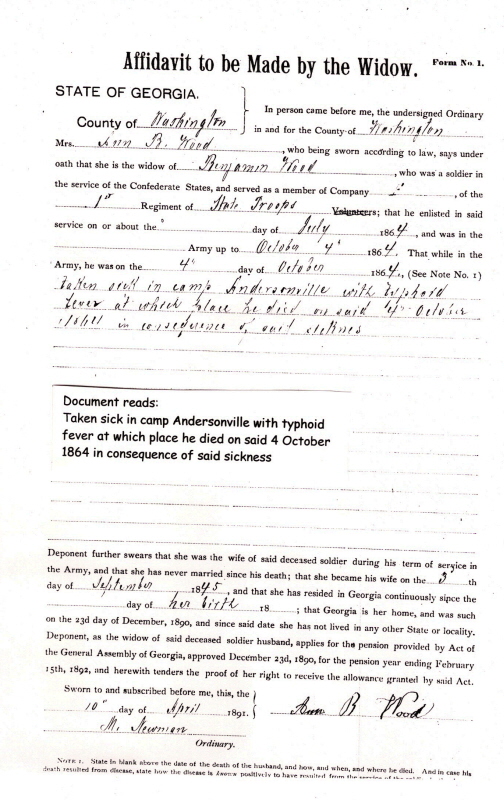 Affidavit to be Made by the Widow. Form No. 1.
STATE OF GEORGIA.
County of Washington
In person came before me, the undersigned Ordinary
in and for the County of Washington
Mrs. Ann B. Wood, who being sworn according to law, says under
oath that she is the widow of Benjamin Wood, who was a soldier in
the service of the Confederate States, and served as a member of Company, of the
1st Regiment of State Troops Volunteers; that he enlisted in said
service on or about the day of July 1864, and was in the
Army up to October 4" 1864. That while in the
Army, he was on the 4" day of October 1864, (See Note No. 1)
taken sick in camp Andersonville with typhoid
fever at which place he died on said 4" October
1864 in consequence of said sickness
Document reads:
Taken sick in camp Andersonville with typhoid
fever at which place he died on said 4 October
1864 in consequence of said sickness
Deponent further swears that she was the wife of said deceased soldier during his term of service in
the Army, and that she has never married since his death; that she became his wife on the th
day of September 1845, and that she has resided in Georgia continuously since the
day of her birth 18 ; that Georgia is her home, and was such
on the 23d day of December, 1890, and since said date she has not lived in any other State or locality.
Deponent, as the widow of said deceased soldier husband, applies for the pension provided by Act of
the General Assembly of Georgia, approved December 23d, 1890, for the pension year ending February
15th, 1892, and herewith tenders the proof of her right to receive the allowance granted by said Act.
Sworn to and subscribed before me, this, the
10" day of April 1891.
Ann B Wood
M. Newman
Ordinary.
NOTE 1. State in blank above the date of the death of the husband, and how, and when, and where he died. And in case his
death resulted from disease, state how the disease is known positively to have resulted from the service of the